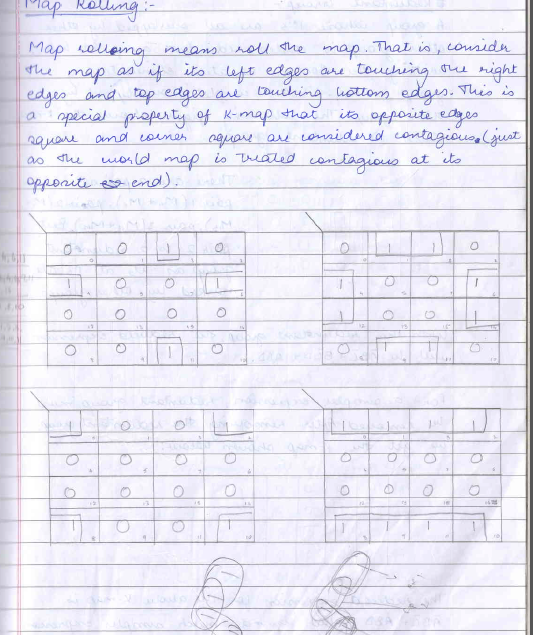 Map Rolling:-
Map rolloing means roll the map. That is, consider
the map as if its left edges are touching the right
edges and top edges are touching bottom edges. This is
a special property of K-map that its opposite edges
square and corner square are considered contagious. (just
as the world map is treated contagious at its
opposite end).
0 0 1 0
1 0 0 1
0 0 0 0
0 0 1 0
0 1 1 0
1 0 0 1
1 0 0 1
0 1 1 0
1 0 0 1
0 0 0 0
0 0 0 0
1 0 0 1
1 1 1 1
0 0 0 0
0 0 0 0
1 1 1 1